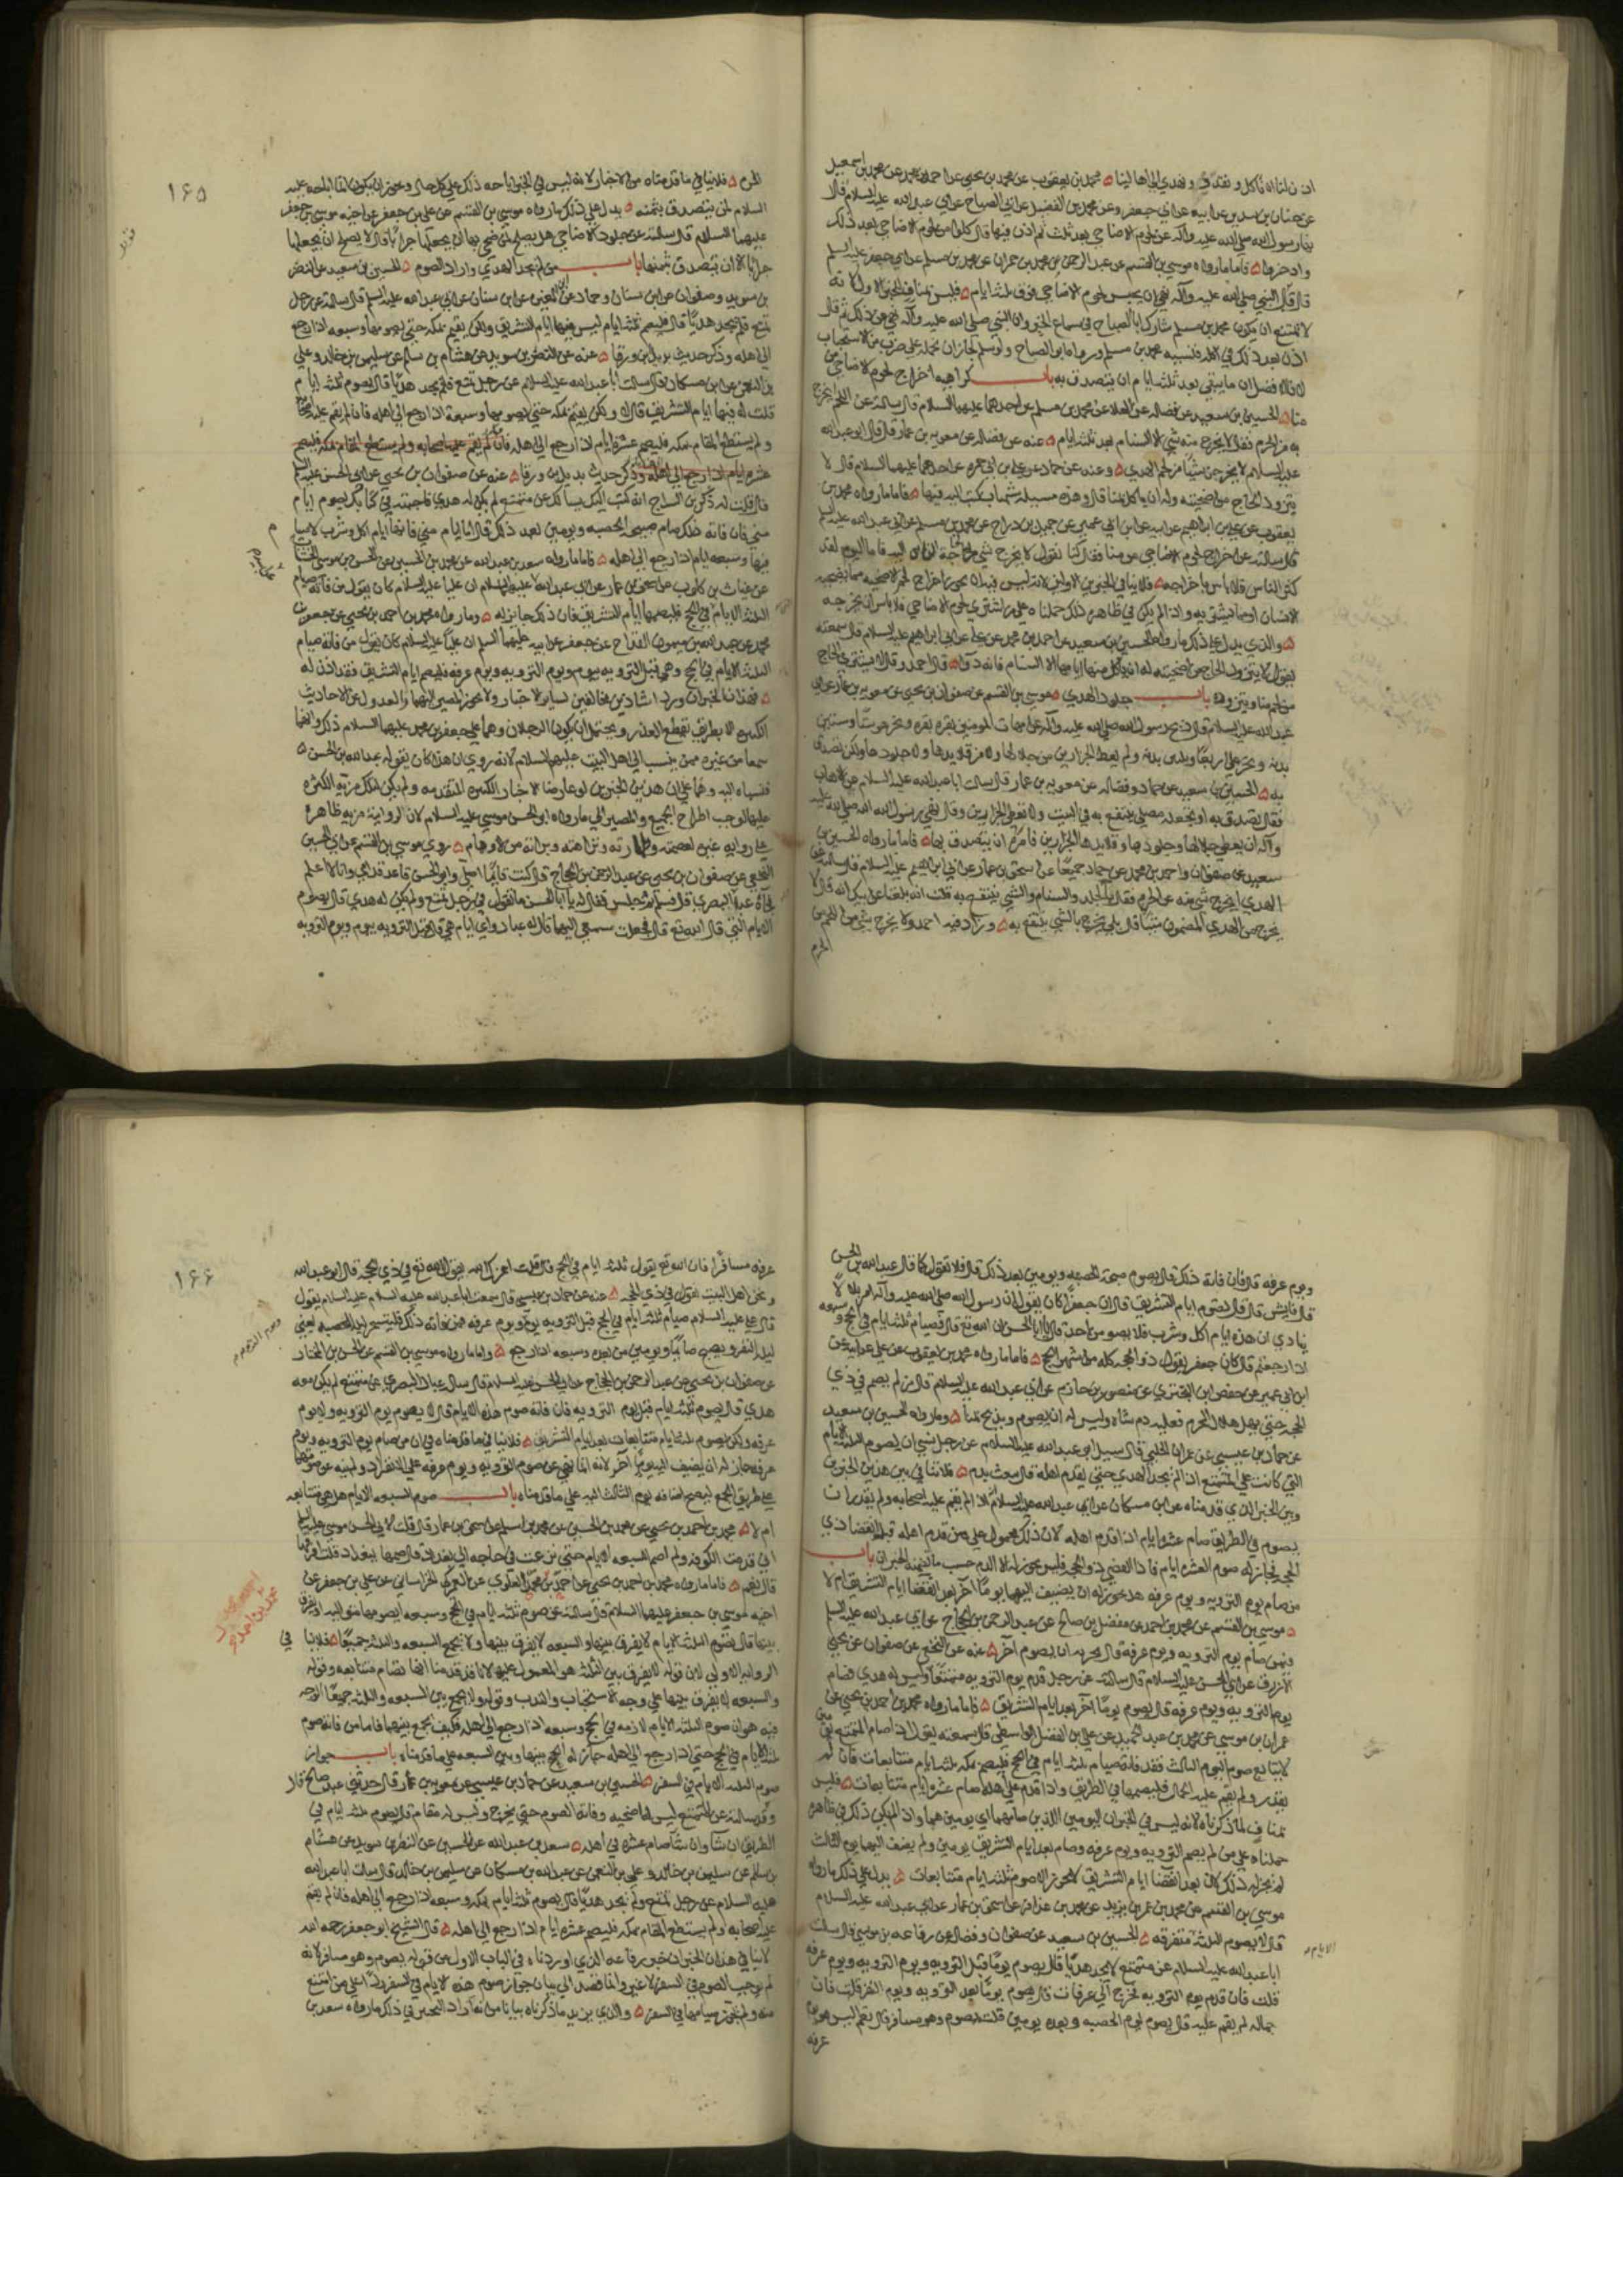 ان زماننا ان نأكل ونقدد ونهدي الى اهالينا محمد بن يعقوب عن محمد بن يحيى عن احمد بن محمد عن محمد بن اسمعيل
عن حنان بن سدير عن ابيه عن ابي جعفر وعن محمد بن الفضيل عن ابي الصباح عن ابي عبد الله عليه السلام قالا
نهى رسول الله صلى الله عليه وآله عن لحوم الاضاحي بعد ثلث ثم اذن فيها قال كلوا من لحوم الاضاحي بعد ذلك
وادخروا فاما ما رواه موسى بن القسم عن عبد الرحمن عن محمد بن حمران عن محمد بن مسلم عن ابي جعفر عليه السلم
قال كان النبي صلى الله عليه وآله نهى ان يحبس لحوم الاضاحي فوق ثلثة ايام فليس بمناف للخبرين الاولين لانه
لا يمتنع ان يكون محمد بن مسلم شارك ابا الصباح في سماع الخبر وان النبي صلى الله عليه وآله نهى عن ذلك ثم قال
اذن بعد ذلك في اكله فنسيه محمد بن مسلم ورواه ابو الصباح ولو سلم لجاز ان نحمله على ضرب من الاستحباب
لانه الافضل ان ما يبقى بعد ثلثة ايام ان يتصدق به باب كراهية اخراج لحوم الاضاحي من
منا الحسين بن سعيد عن فضاله عن العلا عن محمد بن مسلم عن احدهما عليهما السلام قال سالته عن اللحم ايخرج
به من الحرم فقال لا يخرج منه شي الا السنام بعد ثلثة ايام عنه عن فضاله عن معويه بن عمار قال قال ابو عبد الله
عليه السلام لا يخرجن شيئا من لحم الهدي وعنه عن حماد عن علي بن ابي حمزه عن احدهما عليهما السلام قال لا
يتزود الحاج من اضحيته وله ان ياكل منها قال وهذه مسئله شهاب كتب اليه فيها فاما ما رواه محمد بن
يعقوب عن علي بن ابراهيم عن ابيه عن ابن ابي عمير عن جميل بن دراج عن محمد بن مسلم عن ابي عبد الله عليه السلم
قال سالته عن اخراج لحوم الاضاحي من منا فقال كنا نقول لا يخرج شي لحاجة الناس اليه فاما اليوم فقد
كثر الناس فلا باس باخراجه فلا ينافي الخبرين الاولين لانه ليس فيه انه يجوز اخراج لحم الاضحيه مما يضحيه
الانسان او مما يشتريه واذا لم يكن في ظاهره ذلك حملناه على من اشترى لحوم الاضاحي فلا باس ان يخرجه
والذي يدل على ذلك ما رواه الحسين بن سعيد عن احمد بن محمد عن علي عن ابي ابراهيم عليه السلام قال سمعته
يقول لا يتزود الحاج من اضحيته وله ان ياكل منها ايامها الا السنام فانه دوا قال احمد وقال لا باس ان يشتري الحاج
من لحم منا ويتزوده باب جلود الهدي موسى بن القسم عن صفوان بن يحيى عن معويه بن عمار عن ابي
عبد الله عليه السلام قال ذبح رسول الله صلى الله عليه وآله عن امهات المومنين بقره بقره ونحر هو ستا وستين
بدنه ونحر علي اربعا وثلثين بدنه ولم يعط الجزارين من جلالها ولا من قلايدها ولا جلودها ولكن تصدق
به الحسين بن سعيد عن حماد وفضاله عن معويه بن عمار قال سالت ابا عبد الله عليه السلام عن الاهاب
فقال تصدق به او تجعله مصلى ينتفع به في البيت ولا تعطي الجزارين وقال نهى رسول الله صلى الله عليه
وآله ان يعطى جلالها وجلودها وقلايدها الجزارين فامرهم ان يتصدق بها فاما ما رواه الحسين بن
سعيد عن صفوان واحمد بن محمد عن حماد جميعا عن اسحق بن عمار عن ابي ابراهيم عليه السلام قال سالته عن
الهدي ايخرج شي منه عن الحرم فقال بالجلد والسنام والشي ينتفع به قلت انه بلغنا عن ابيك انه قال لا
يخرج من الهدي المضمون شيئا قال بلى يخرج بالشي ينتفع به وزاد فيه احمد ولا يخرج بشي من اللحم من
الحرم
۱۶۵
الحرم فلا ينافي ما قدمناه من الاخبار لانه ليس في الخبر اباحه ذلك على كل حال ويجوز ان يكون انما اباحه عليه
السلام لمن يتصدق بثمنه يدل على ذلك ما رواه موسى بن القسم عن علي بن جعفر عن اخيه موسى بن جعفر
عليهما السلام قال سالته عن جلود الاضاحي هل يصلح لمن ضحى بها ان يجعلها جرابا قال لا يصلح ان يجعلها
جرابا الا ان يتصدق بثمنها باب من لم يجد الهدي واراد الصوم الحسين بن سعيد عن النضر
بن سويد وصفوان عن ابن سنان وحماد عن ابن المغيره عن ابن سنان عن ابي عبد الله عليه السلم قال سالته عن رجل
تمتع فلم يجد هديا قال فليصم ثلثة ايام ليس فيها ايام التشريق ولكن يقيم بمكه حتى يصومها وسبعه اذا رجع
الى اهله وذكر حديث بديل بن ورقا عنه عن النضر بن سويد عن هشام بن سالم عن سليمن بن خالد وعلي
بن النعمن عن ابن مسكان قال سالت ابا عبد الله عليه السلام عن رجل تمتع فلم يجد هديا قال يصوم ثلثة ايام
قلت له فيها ايام التشريق قال لا ولكن يقيم بمكه حتى يصومها وسبعة اذا رجع الى اهله فان لم يقم عليه اصحابه
ولم يستطع المقام بمكه فليصم عشرة ايام اذا رجع الى اهله فان لم يقم عليه اصحابه ولم يستطع المقام بمكه فليصم
عشره ايام اذا رجع الى اهله وذكر حديث بديل بن ورقا عنه عن صفوان بن يحيى عن ابي الحسن عليه السلم
قال قلت له ذكر ابن السراج انه كتب اليك يسالك عن متمتع لم يكن له هدي فاجبته في كتابك يصوم ايام
منى فان فاته ذلك صام صبيحة الحصبه ويومين بعد ذلك قال اما ايام منى فانها ايام اكل وشرب لا صيام
فيها وسبعه ايام اذا رجع الى اهله فاما ما رواه سعد بن عبد الله عن محمد بن الحسين عن الحسن بن موسى الخشاب
عن غياث بن كلوب عن اسحق بن عمار عن ابي عبد الله عليهما السلام ان عليا عليه السلام كان يقول من فاته صيام
الثلثة الايام في الحج فليصمها ايام التشريق فان ذلك جايز له وما رواه محمد بن احمد بن يحيى عن جعفر بن
محمد عن عبد الله بن ميمون القداح عن جعفر عن ابيه عليهما السلم ان عليا عليه السلام كان يقول من فاته صيام
الثلثة الايام في الحج وهي قبل الترويه بيوم ويوم الترويه ويوم عرفه فليصم ايام التشريق فقد اذن له
فهذان الخبران وردا شاذين مخالفين لساير الاخبار ولا يجوز المصير اليهما والعدول عن الاحاديث
الكثيره الا بطريق تقطع العذر ويحتمل ان يكون الرجلان وهما على جعفر بن محمد عليهما السلام ذكرا انهما
سمعا من غيره ممن ينسب الى اهل البيت عليهم السلام لانه روي ان هذا كان يقوله عبد الله بن الحسن
فنسباه اليه وهما على ان هذين الخبرين لو عارضا الاخبار الكثيره المتقدمه ولم يكن لتلك مزيه الكثره
عليهما لوجب اطراح الجميع والمصير الى ما رواه ابو الحسن موسى عليه السلام لان لروايته مزيه ظاهره
على روايه غيره لعصمته وطهارته ونزاهته وبراته من الاوهام روى موسى بن القسم عن ابي الحسين
النخعي عن صفوان بن يحيى عن عبد الرحمن بن الحجاج قال كنت قايما اصلي وابو الحسن قاعد قدامي وانا لا اعلم
فجاءه عباد البصري قال فسلم ثم جلس فقال له يا ابا الحسن ما تقول في رجل تمتع ولم يكن له هدي قال يصوم
الايام التي قال الله تع قال فجعلت سمعي اليهما قال له عباد واي ايام هي قال قبل الترويه بيوم ويوم الترويه
ويوم عرفه قال فان فاته ذلك قال يصوم صبيحة الحصبه ويومين بعد ذلك قال افلا تقول كما قال عبد الله بن الحسن
قال فايش قال قال يصوم ايام التشريق قال ان جعفرا كان يقول ان رسول الله صلى الله عليه وآله امر بلالا
ينادي ان هذه ايام اكل وشرب فلا يصومن احد قال يا ابا الحسن ان الله تع قال فصيام ثلثة ايام في الحج وسبعه
اذا رجعتم قال كان جعفر يقول ذو الحجه كله من اشهر الحج فاما ما رواه محمد بن يعقوب عن علي عن ابيه عن
ابن ابي عمير عن حفص ابن البختري عن منصور بن حازم عن ابي عبد الله عليه السلام قال من لم يصم في ذي
الحجه حتى يهل هلال المحرم فعليه دم شاه وليس له ان يصوم ويذبح بمنا وما رواه الحسين بن سعيد
عن حماد بن عيسى عن عمران الحلبي قال سيل ابو عبد الله عليه السلام عن رجل نسي ان يصوم الثلثة الايام
التي كانت على المتمتع اذا لم يجد الهدي حتى يقدم اهله قال يبعث بدم فلا تنافي بين هذين الخبرين
وبين الخبر الذي قدمناه عن ابن مسكان عن ابي عبد الله عليه السلام اذا لم يقم عليه اصحابه ولم يقدر ان
يصوم في الطريق صام عشره ايام اذا قدم اهله لان ذلك محمول على من قدم اهله قبل انقضا ذي
الحجه فجاز له صوم العشره ايام فاذا انقضى ذو الحجه فليس يجوز له الا الدم حسب ما تضمنه الخبران باب
من صام يوم الترويه ويوم عرفه هل يجوز له ان يضيف اليهما يوما آخر بعد انقضا ايام التشريق ام لا
موسى بن القسم عن محمد بن احمد عن مفضل بن صالح عن عبد الرحمن بن الحجاج عن ابي عبد الله عليه السلم
فيمن صام يوم الترويه ويوم عرفه قال يجزيه ان يصوم يوما آخر عنه عن النخعي عن صفوان عن يحيى
الازرق عن ابي الحسن عليه السلام قال سالته عن رجل قدم يوم الترويه متمتعا وليس له هدي فصام
يوم الترويه ويوم عرفه قال يصوم يوما آخر بعد ايام التشريق فاما ما رواه محمد بن احمد بن يحيى عن
عمران بن موسى عن محمد بن عبد الحميد عن علي بن الفضل الواسطي قال سمعته يقول اذا صام المتمتع يومين
لا يتابع صوم اليوم الثالث فقد فاته صيام ثلثة ايام في الحج فليصم بمكه ثلثة ايام متتابعات فان لم
يقدر ولم يقم عليه الجمال فليصمها في الطريق واذا قدم على اهله صام عشره ايام متتابعات فليس
بمناف لما ذكرناه لانه ليس في الخبر ان اليومين اللذين صامهما اي يومين هما واذا لم يكن ذلك في ظاهره
حملناه على من لم يصم الترويه ويوم عرفه وصام بعد ايام التشريق يومين ولم يضف اليهما يوم الثالث
لم يجزيه ذلك لان بعد انقضا ايام التشريق لا يجوز الا صوم ثلثة ايام متتابعات يدل على ذلك ما رواه
موسى بن القسم عن محمد بن عمر بن يزيد عن محمد بن عذافر عن اسحق بن عمار عن ابي عبد الله عليه السلام
قال لا يصوم الثلثة متفرقه الحسين بن سعيد عن صفوان وفضاله عن رفاعه بن موسى قال سالت
الايام
ابا عبد الله عليه السلام عن متمتع لا يجد هديا قال يصوم يوما قبل الترويه ويوم الترويه ويوم عرفه
قلت فان قدم يوم الترويه فخرج الى عرفات قال يصوم يوما بعد الترويه ويوم النفر قلت فان
جماله لم يقم عليه قال يصوم يوم الحصبه وبعده يومين قلت يصوم وهو مسافر قال نعم اليس هو يوم
عرفه
۱۶۶
عرفه مسافرا فان الله تع يقول ثلثة ايام في الحج قال قلت اعزك الله يقول الله تع في ذي الحجه قال ابو عبد الله
ونحن اهل البيت نقول في ذي الحجه عنه عن حماد بن عيسى قال سمعت ابا عبد الله عليه السلام يقول
قال علي عليه السلام صيام ثلثة ايام في الحج قبل الترويه يوم ويوم عرفه فمن فاته ذلك فليتسحر ليلة الحصبه يعني
ليله النفر ويصبح صايما ويومين من بعده وسبعه اذا رجع واما ما رواه موسى بن القسم عن الحسن بن المختار
عن صفوان بن يحيى عن عبد الرحمن بن الحجاج عن ابي الحسن عليه السلام قال سال عباد البصري عن متمتع لم يكن معه
هدي قال يصوم ثلثة ايام قبل يوم الترويه فان فاته صوم هذه الايام قال لا يصوم يوم الترويه ولا يوم
عرفه ولكن يصوم ثلثة ايام متتابعات بعد ايام التشريق فلا ينافي ما قدمناه في ان من صام يوم الترويه ويوم
عرفه جاز له ان يضيف اليه يوما آخر لانه انما نهى عن صوم الترويه ويوم عرفه على الانفراد ولم ينه عن صومهما
على طريق الجمع ليصح اضافه يوم الثالث اليه على ما قدمناه باب صوم السبعه الايام هل هي متتابعه
ام لا محمد بن احمد بن يحيى عن محمد بن الحسين عن محمد بن اسلم عن اسحق بن عمار قال قلت لابي الحسن موسى عليه السلم
اني قدمت الكوفه ولم اصم السبعه الايام حتى نزعت في حاجه الى بغداد قال صمها ببغداد قلت افرقها
قال نعم فاما ما رواه محمد بن احمد بن يحيى عن احمد بن محمد العلوي عن العمركي الخراساني عن علي بن جعفر عن
اخيه موسى بن جعفر عليهما السلام قال سالته عن صوم ثلثه ايام في الحج وسبعه ايصومها متواليه او يفرق
بينها قال يصوم الثلثة الايام لا يفرق بينها والسبعه لا يفرق بينها ولا يجمع السبعه والثلثه جميعا فلا ينافي
الروايه الاولى لان قوله لا يفرق بين الثلثه هو المعمول عليه لانا قد قدمنا انها تصام متتابعه وقوله
والسبعه لا يفرق بينها على وجه الاستحباب والندب وقوله ولا يجمع بين السبعه والثلثه جميعا الوجه
فيه هو ان صوم الثلثه الايام لازمه في الحج وسبعه اذا رجع الى اهله فكيف يجمع بينهما فاما من فاته صوم
ثلثة الايام في الحج حتى اذا رجع الى اهله جاز له الجمع بينها وبين السبعه على ما قدمناه باب جواز
صوم الثلثه الايام في السفر الحسين بن سعيد عن حماد بن عيسى عن معويه بن عمار قال حدثني عبد صالح قال
سالته عن المتمتع ليس له اضحيه وفاته الصوم حتى يخرج وليس له مقام قال يصوم ثلثة ايام في
الطريق ان شا وان شا صام عشره في اهله سعد بن عبد الله عن الحسين عن النضر بن سويد عن هشام
بن سالم عن سليمن بن خالد وعلي بن النعمن عن عبد الله بن مسكان عن سليمن بن خالد قال سالت ابا عبد الله
عليه السلام عن رجل تمتع ولم يجد هديا قال يصوم ثلثة ايام بمكه وسبعه اذا رجع الى اهله فان لم يقم
عليه اصحابه ولم يستطع المقام بمكه فليصم عشره ايام اذا رجع الى اهله قال الشيخ ابو جعفر رحمه الله
لا ينافي هذان الخبران خبر رفاعه الذي اوردناه في الباب الاول من قوله يصوم وهو مسافر لانه
لم يوجب الصوم في السفر لا غير وانما قصد الى بيان جواز صوم هذه الايام في السفر ردا على من امتنع
منه ولم يجوز صيامها في السفر والذي يزيد ما ذكرناه بيانا من انه اراد التخيير في ذلك ما رواه سعد بن